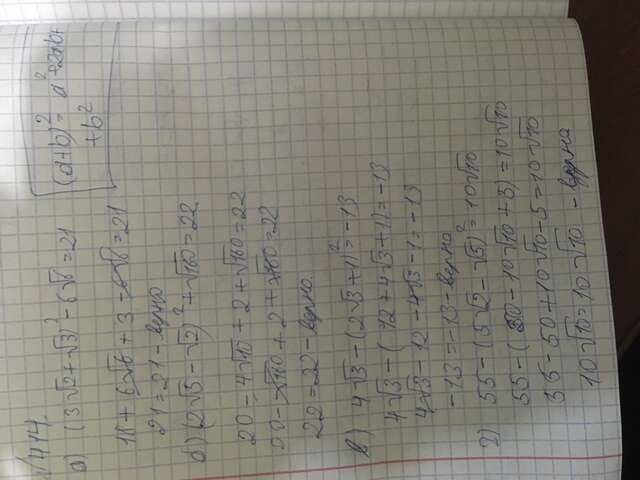 √414.
(a+b)² = a² + 2ab +
+ b²
а) (3√2+√3)² - 6√6 = 21
18 + 6√6 + 3 - 6√6 = 21
21 = 21 - верно
б) (2√5 - √2)² + √160 = 22
20 - 4√10 + 2 + √160 = 22
20 - √160 + 2 + √160 = 22
22 = 22 - верно.
в) 4√3 - (2√3+1)² = -13
4√3 - (12+4√3+1) = -13
4√3 - 12 - 4√3 - 1 = -13
-13 = -13 - верно
г) 55 - (5√2 - √5)² = 10√10
55 - (50 - 10√10 + 5) = 10√10
36 - 50 + 10√10 - 5 = 10√10
10√10 = 10√10 - верно